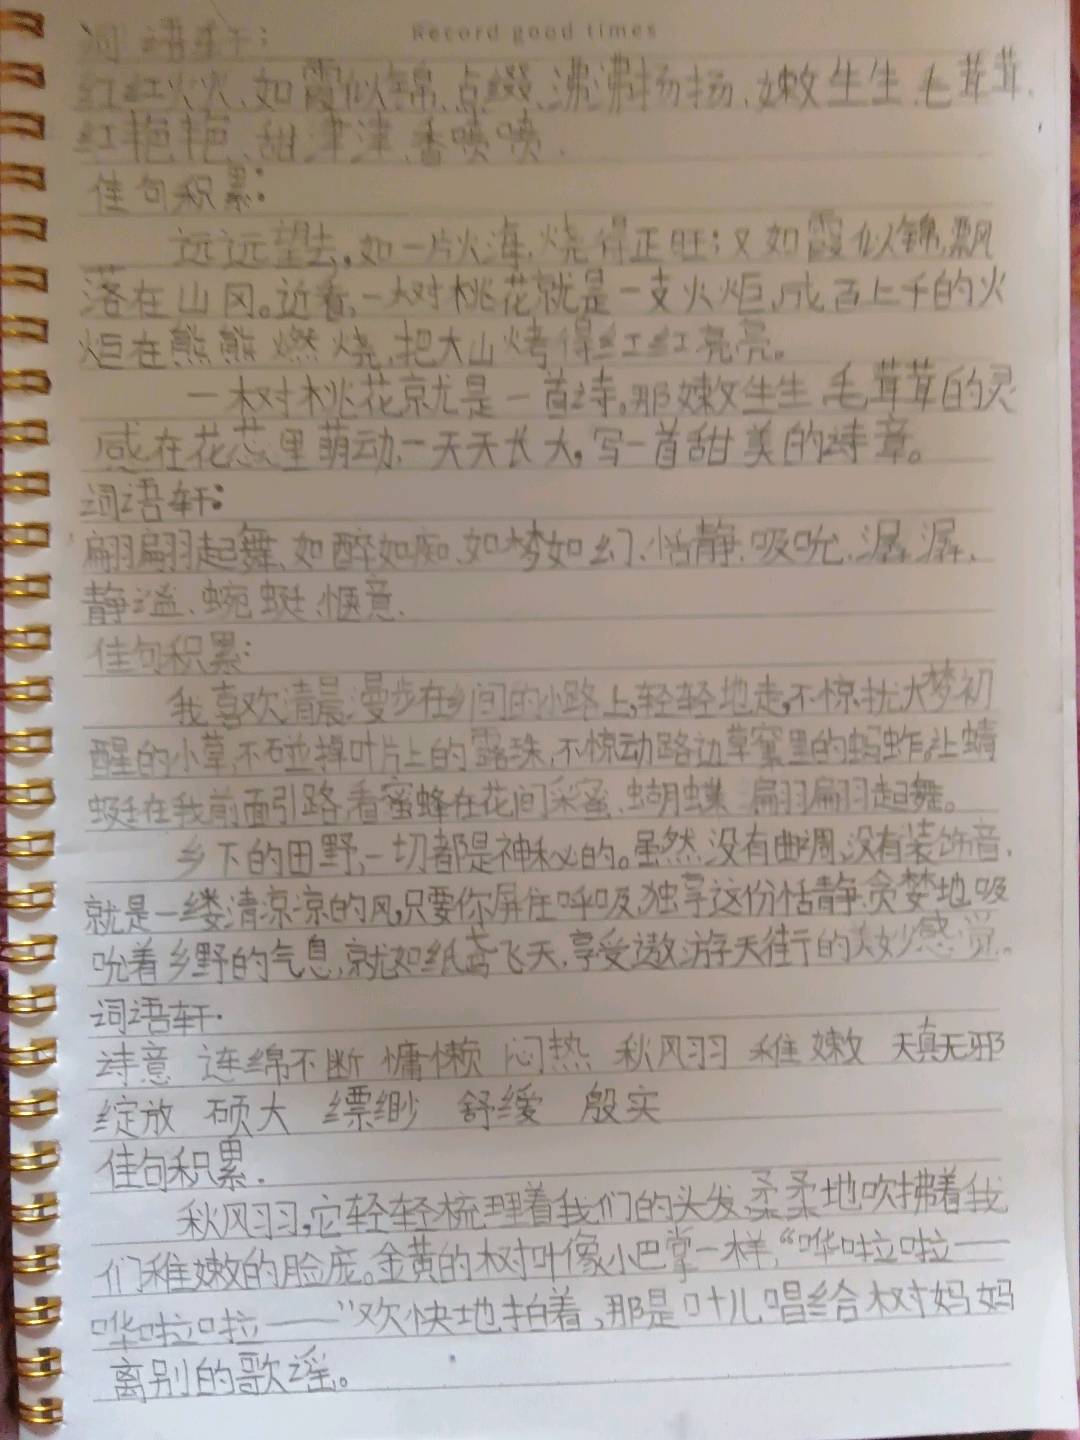 Record good times
词语轩:
红红火火、如霞似锦、点缀、沸沸扬扬、嫩生生、毛茸茸、
红艳艳、甜津津、香喷喷.
佳句积累:
远远望去,如一片火海,烧得正旺;又如霞似锦,飘
落在山冈。近看,一树桃花就是一支火炬,成百上千的火
炬在熊熊燃烧,把大山烤得红红亮亮。
一树桃花就是一首诗。那嫩生生、毛茸茸的灵
感在花蕊里萌动,一天天长大,写一首甜美的诗章。
词语轩:
翩翩起舞、如醉如痴、如梦如幻、恬静、吸吮、潺潺、
静谧、蜿蜒、惬意.
佳句积累:
我喜欢清晨漫步在乡间的小路上,轻轻地走,不惊扰大梦初
醒的小草,不碰掉叶片上的露珠,不惊动路边草窠里的蚂蚱,让蜻
蜓在我前面引路,看蜜蜂在花间采蜜,蝴蝶翩翩起舞。
乡下的田野,一切都是神秘的。虽然没有曲调,没有装饰音,
就是一缕清凉凉的风,只要你屏住呼吸,独享这份恬静,贪婪地吸
吮着乡野的气息,就如纸鸢飞天,享受遨游天街的美妙感觉。
词语轩.
诗意 连绵不断 慵懒 闷热 秋风习习 稚嫩 天真无邪
绽放 硕大 缥缈 舒缓 殷实
佳句积累.
秋风习习,它轻轻梳理着我们的头发,柔柔地吹拂着我
们稚嫩的脸庞。金黄的树叶像小巴掌一样,“哗啦啦——
哗啦啦——”欢快地拍着,那是叶儿唱给树妈妈
离别的歌谣。